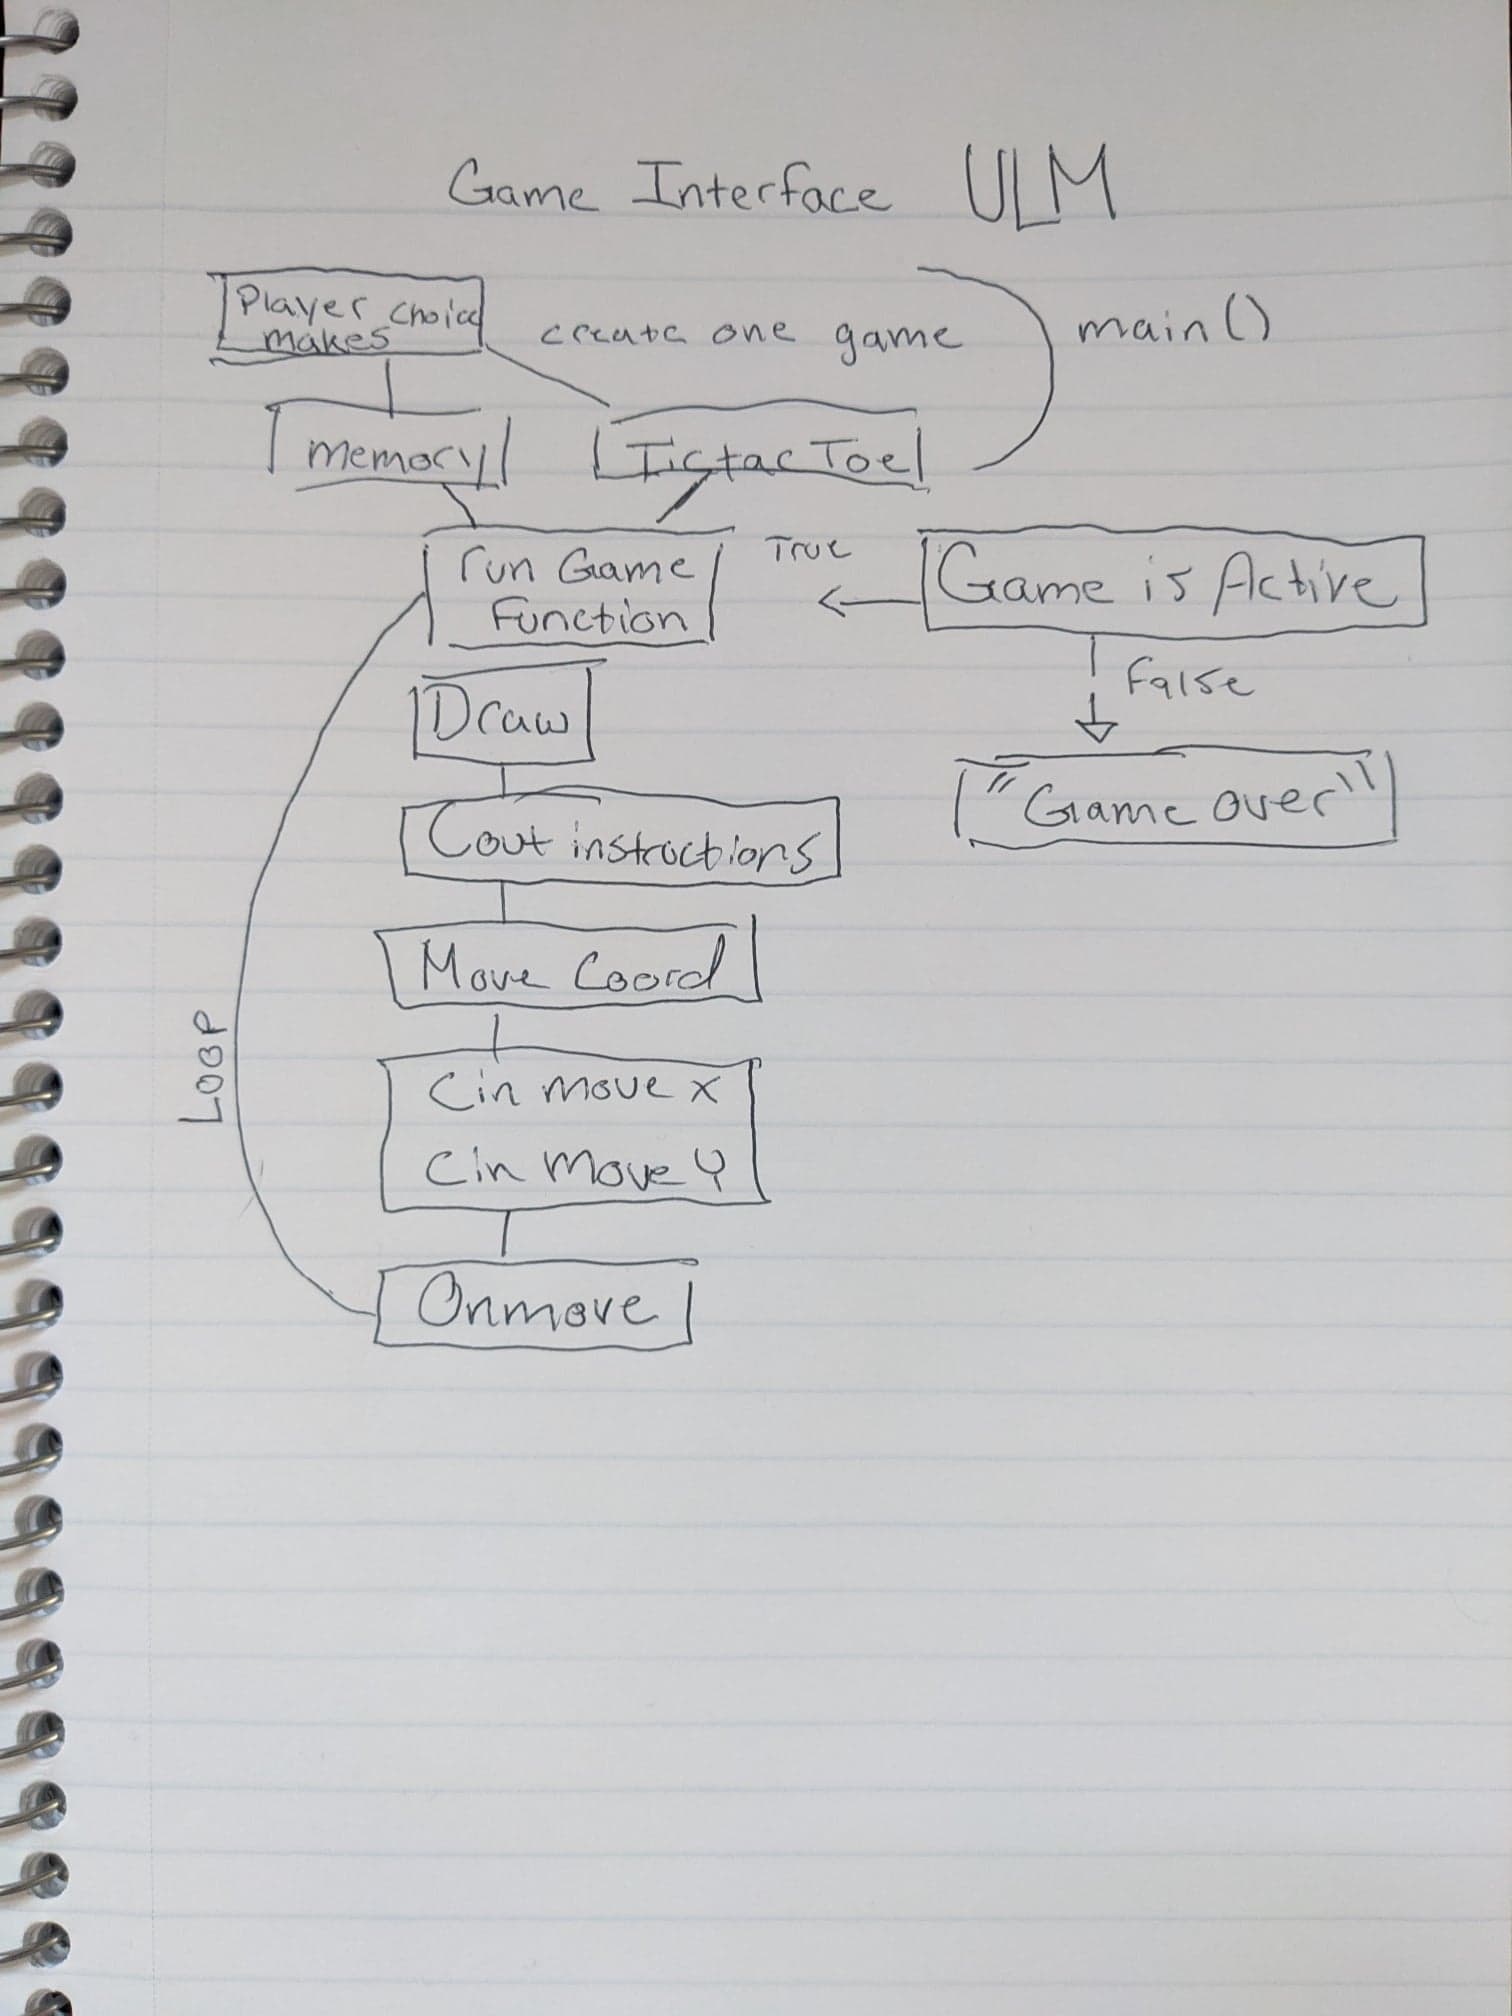 Game Interface ULM
Player choice
makes
create one game
main()
memory
TictacToe
run Game
Function
True
Game is Active
False
"Game over"
Draw
Cout instructions
Move Coord
Cin move x
Cin Move Y
Onmove
LOOP